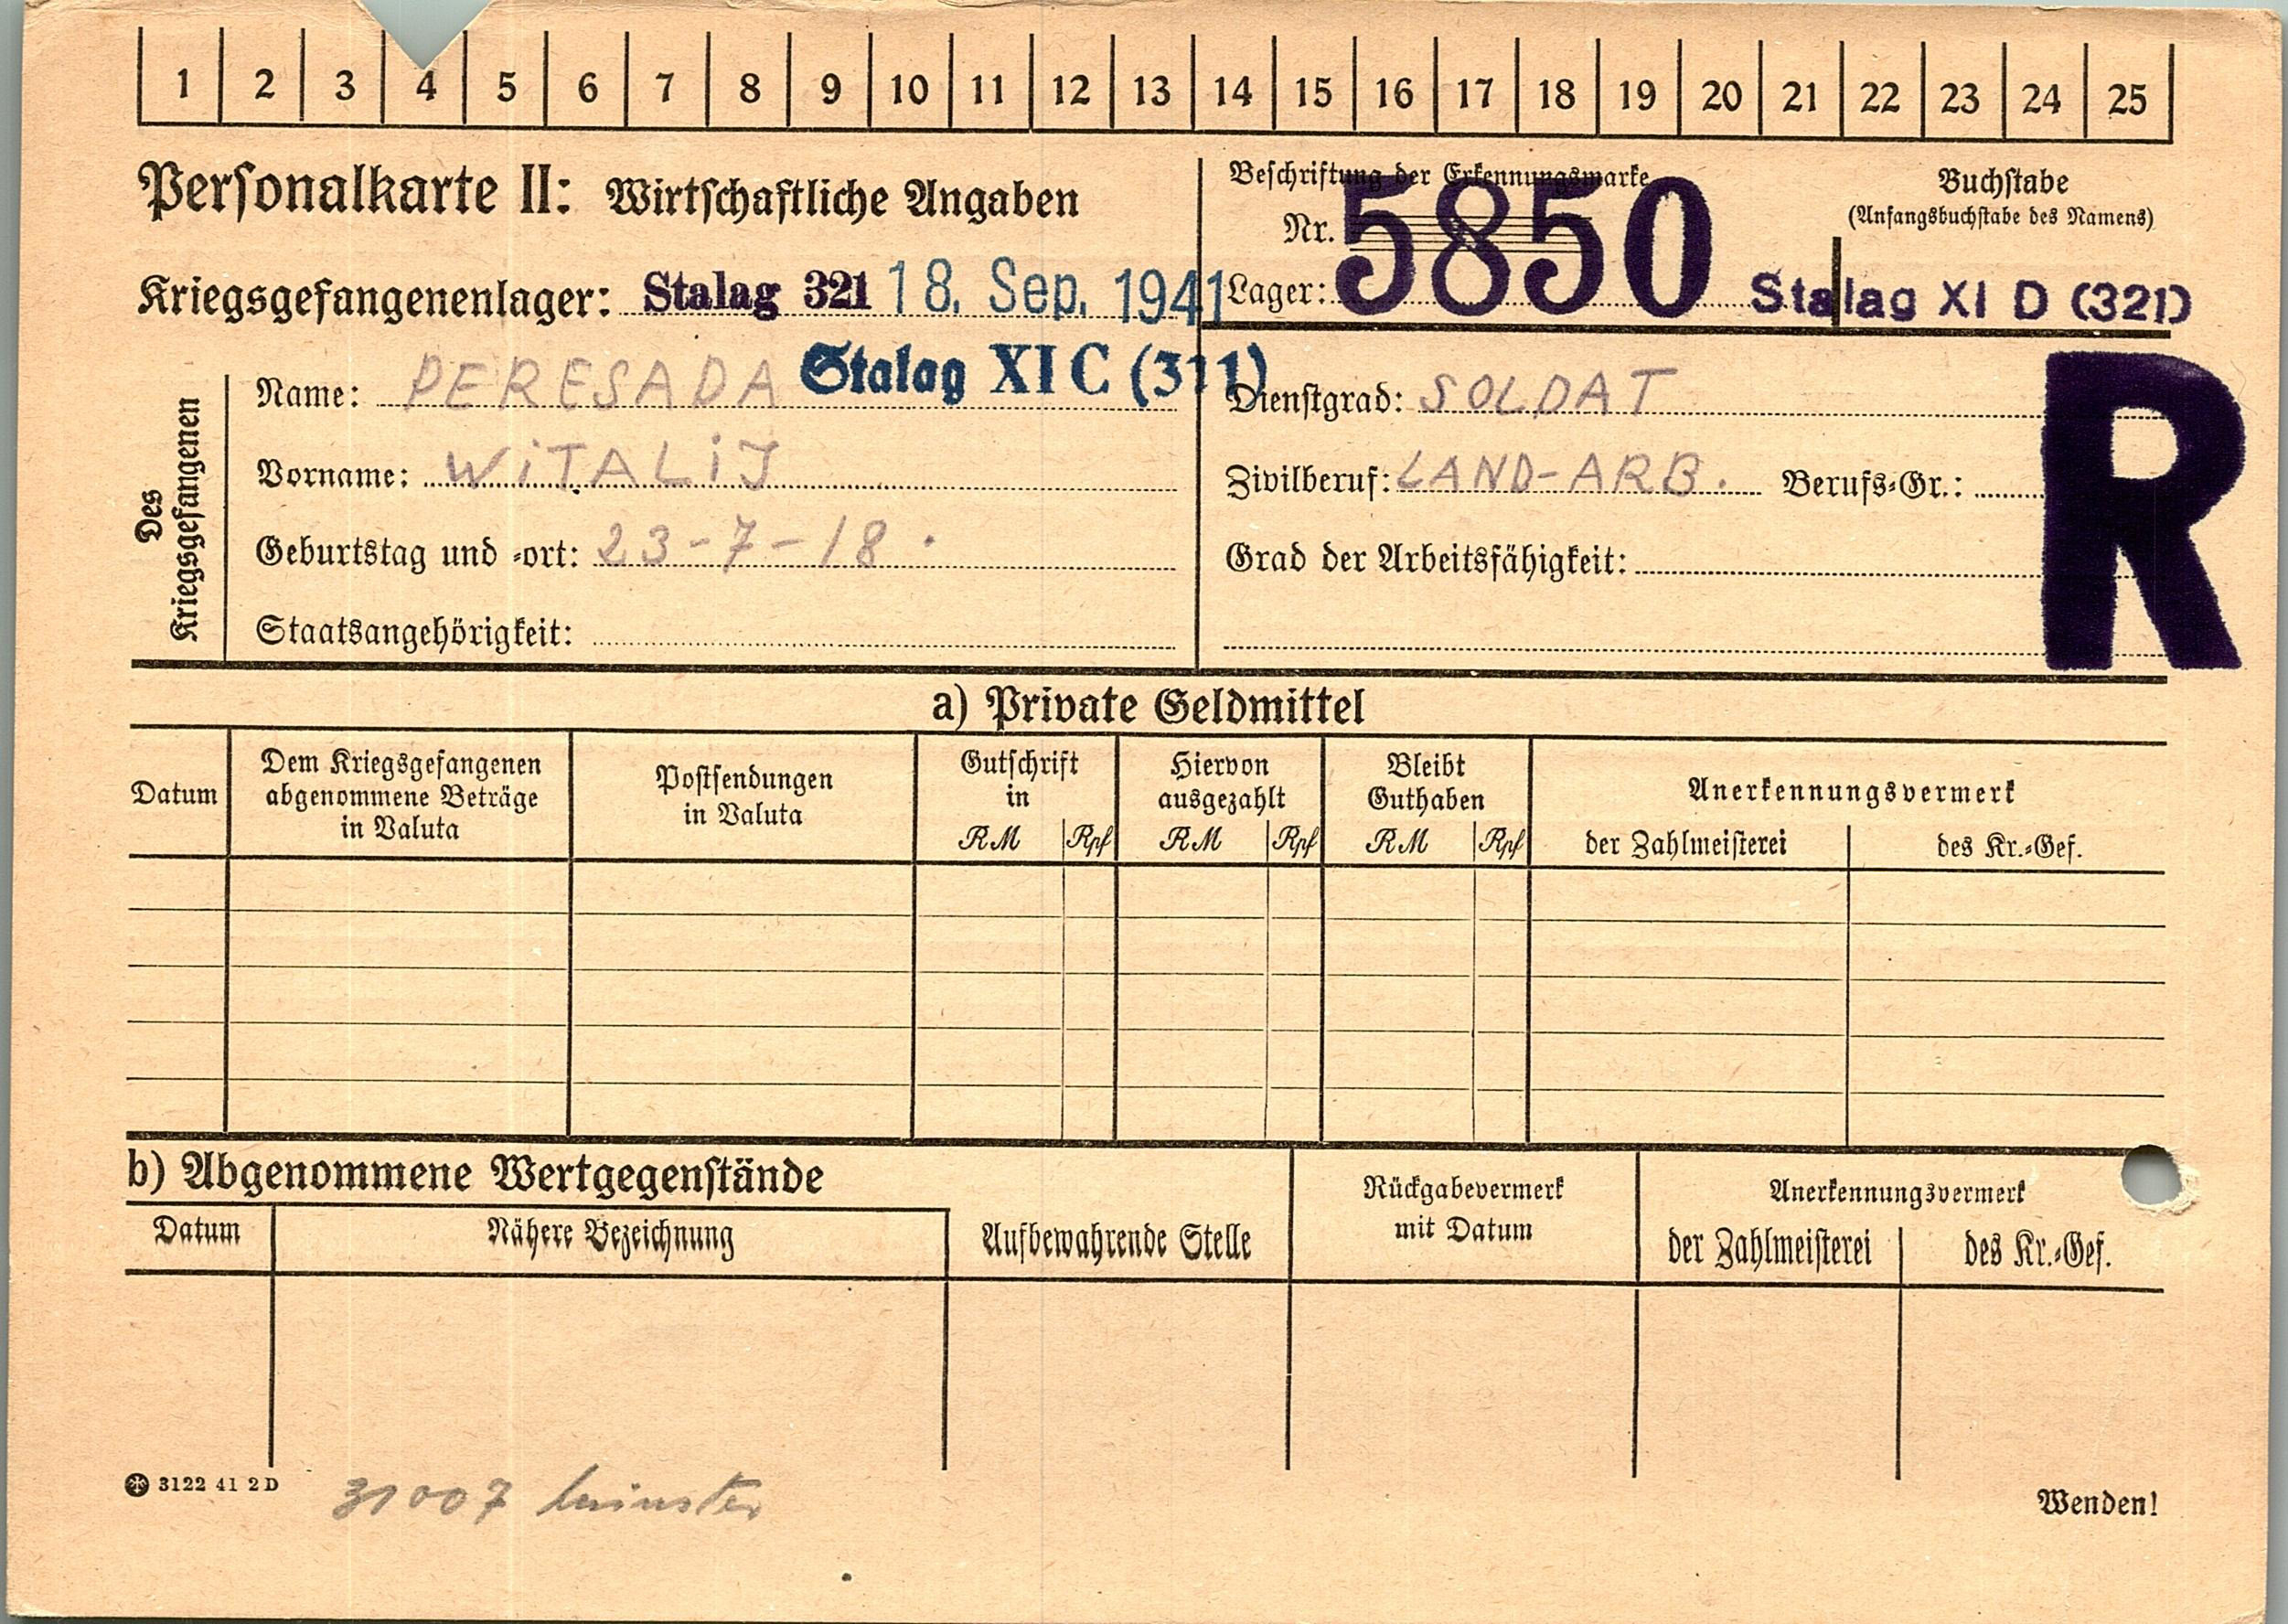 1 2 3 4 5 6 7 8 9 10 11 12 13 14 15 16 17 18 19 20 21 22 23 24 25
Personalkarte II: Wirtschaftliche Angaben
Beschriftung der Erkennungsmarke
Nr. 5850
Lager: Stalag XI D (321)
Buchstabe
(Anfangsbuchstabe des Namens)
Kriegsgefangenenlager: Stalag 321 18. Sep. 1941
Stalag XI C (311)
Des Kriegsgefangenen
Name: PERESADA
Vorname: WiTALiJ
Geburtstag und -ort: 23-7-18.
Staatsangehörigkeit:
Dienstgrad: SOLDAT
Zivilberuf: LAND-ARB. Berufs-Gr.:
Grad der Arbeitsfähigkeit:
R
a) Private Geldmittel
Datum
Dem Kriegsgefangenen
abgenommene Beträge
in Valuta
Postsendungen
in Valuta
Gutschrift
in
RM Rpf
Hiervon
ausgezahlt
RM Rpf
Bleibt
Guthaben
RM Rpf
Anerkennungsvermerk
der Zahlmeisterei des Kr.-Gef.
b) Abgenommene Wertgegenstände
Datum
Nähere Bezeichnung
Aufbewahrende Stelle
Rückgabevermerk
mit Datum
Anerkennungsvermerk
der Zahlmeisterei des Kr.-Gef.
3122 41 2 D
31007
Wenden!